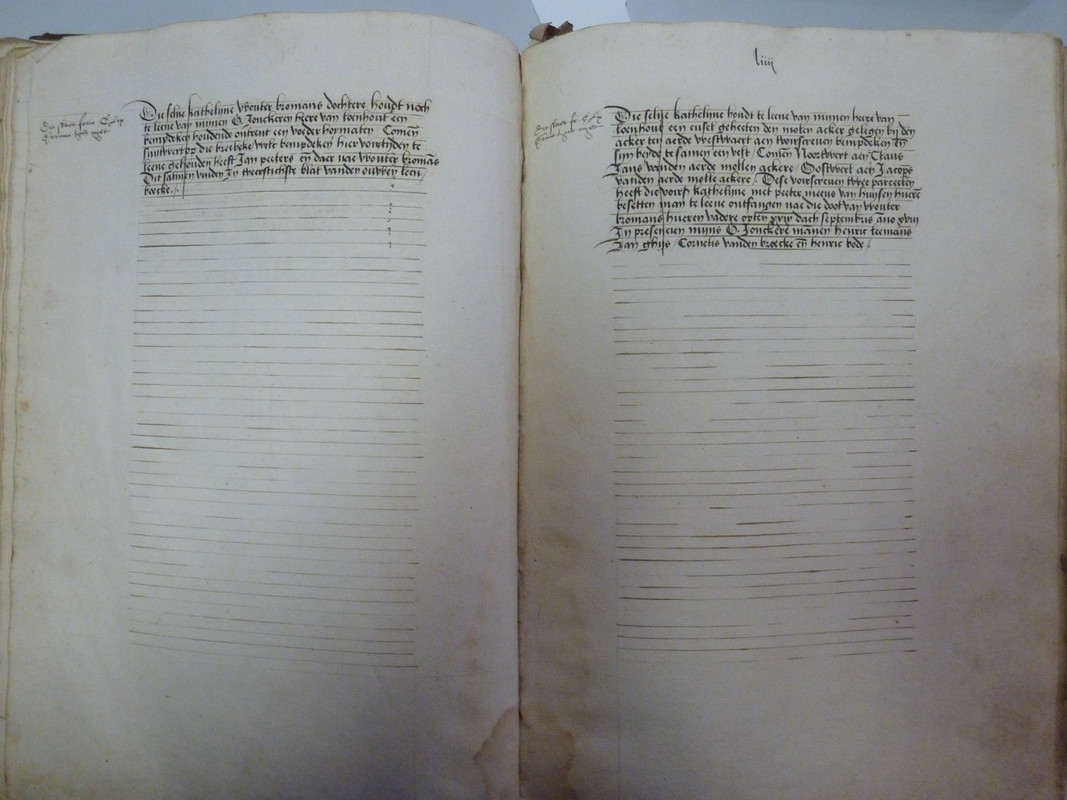 Die selve kathelijne wouter bromans dochtere houdt noch
te leene van mijnen G. Jonckeren heere van loenhout een
bempdeken houdende omtrent een voeder hoymaten Comen
zuutwert op die broebeke welc bempdeken hier voirtijden te
leene gehouden heeft Jan peeters en daer nae wouter bromans
Dit salmen vinden In tweentichste blat vanden ouwen leen
boecke.
liiij
Die selve kathelijne houdt te leene van mijnen heere van
loenhout een euset geheeten den molen acker gelegen bij den
acker ten aerde westwaert aen tvoirscreven bempdeken en
sijn beyde te samen een velt Comen Noortwert aen Claus
Jans vanden aerde mollen ackere Oostwert aen Jacops
vanden aerde molle ackere Dese voirscreven twee parceelen
heeft die voirs kathelijne met peeter meeus van huysen hueren
besetten man te leene ontfangen nae die doot van wouter
bromans hueren vadere opten xviij dach septembris año xviij
In presencien mijns G. Jonckere mannen henric leemans
Jan ghijs Cornelis vanden broecke en henric bode